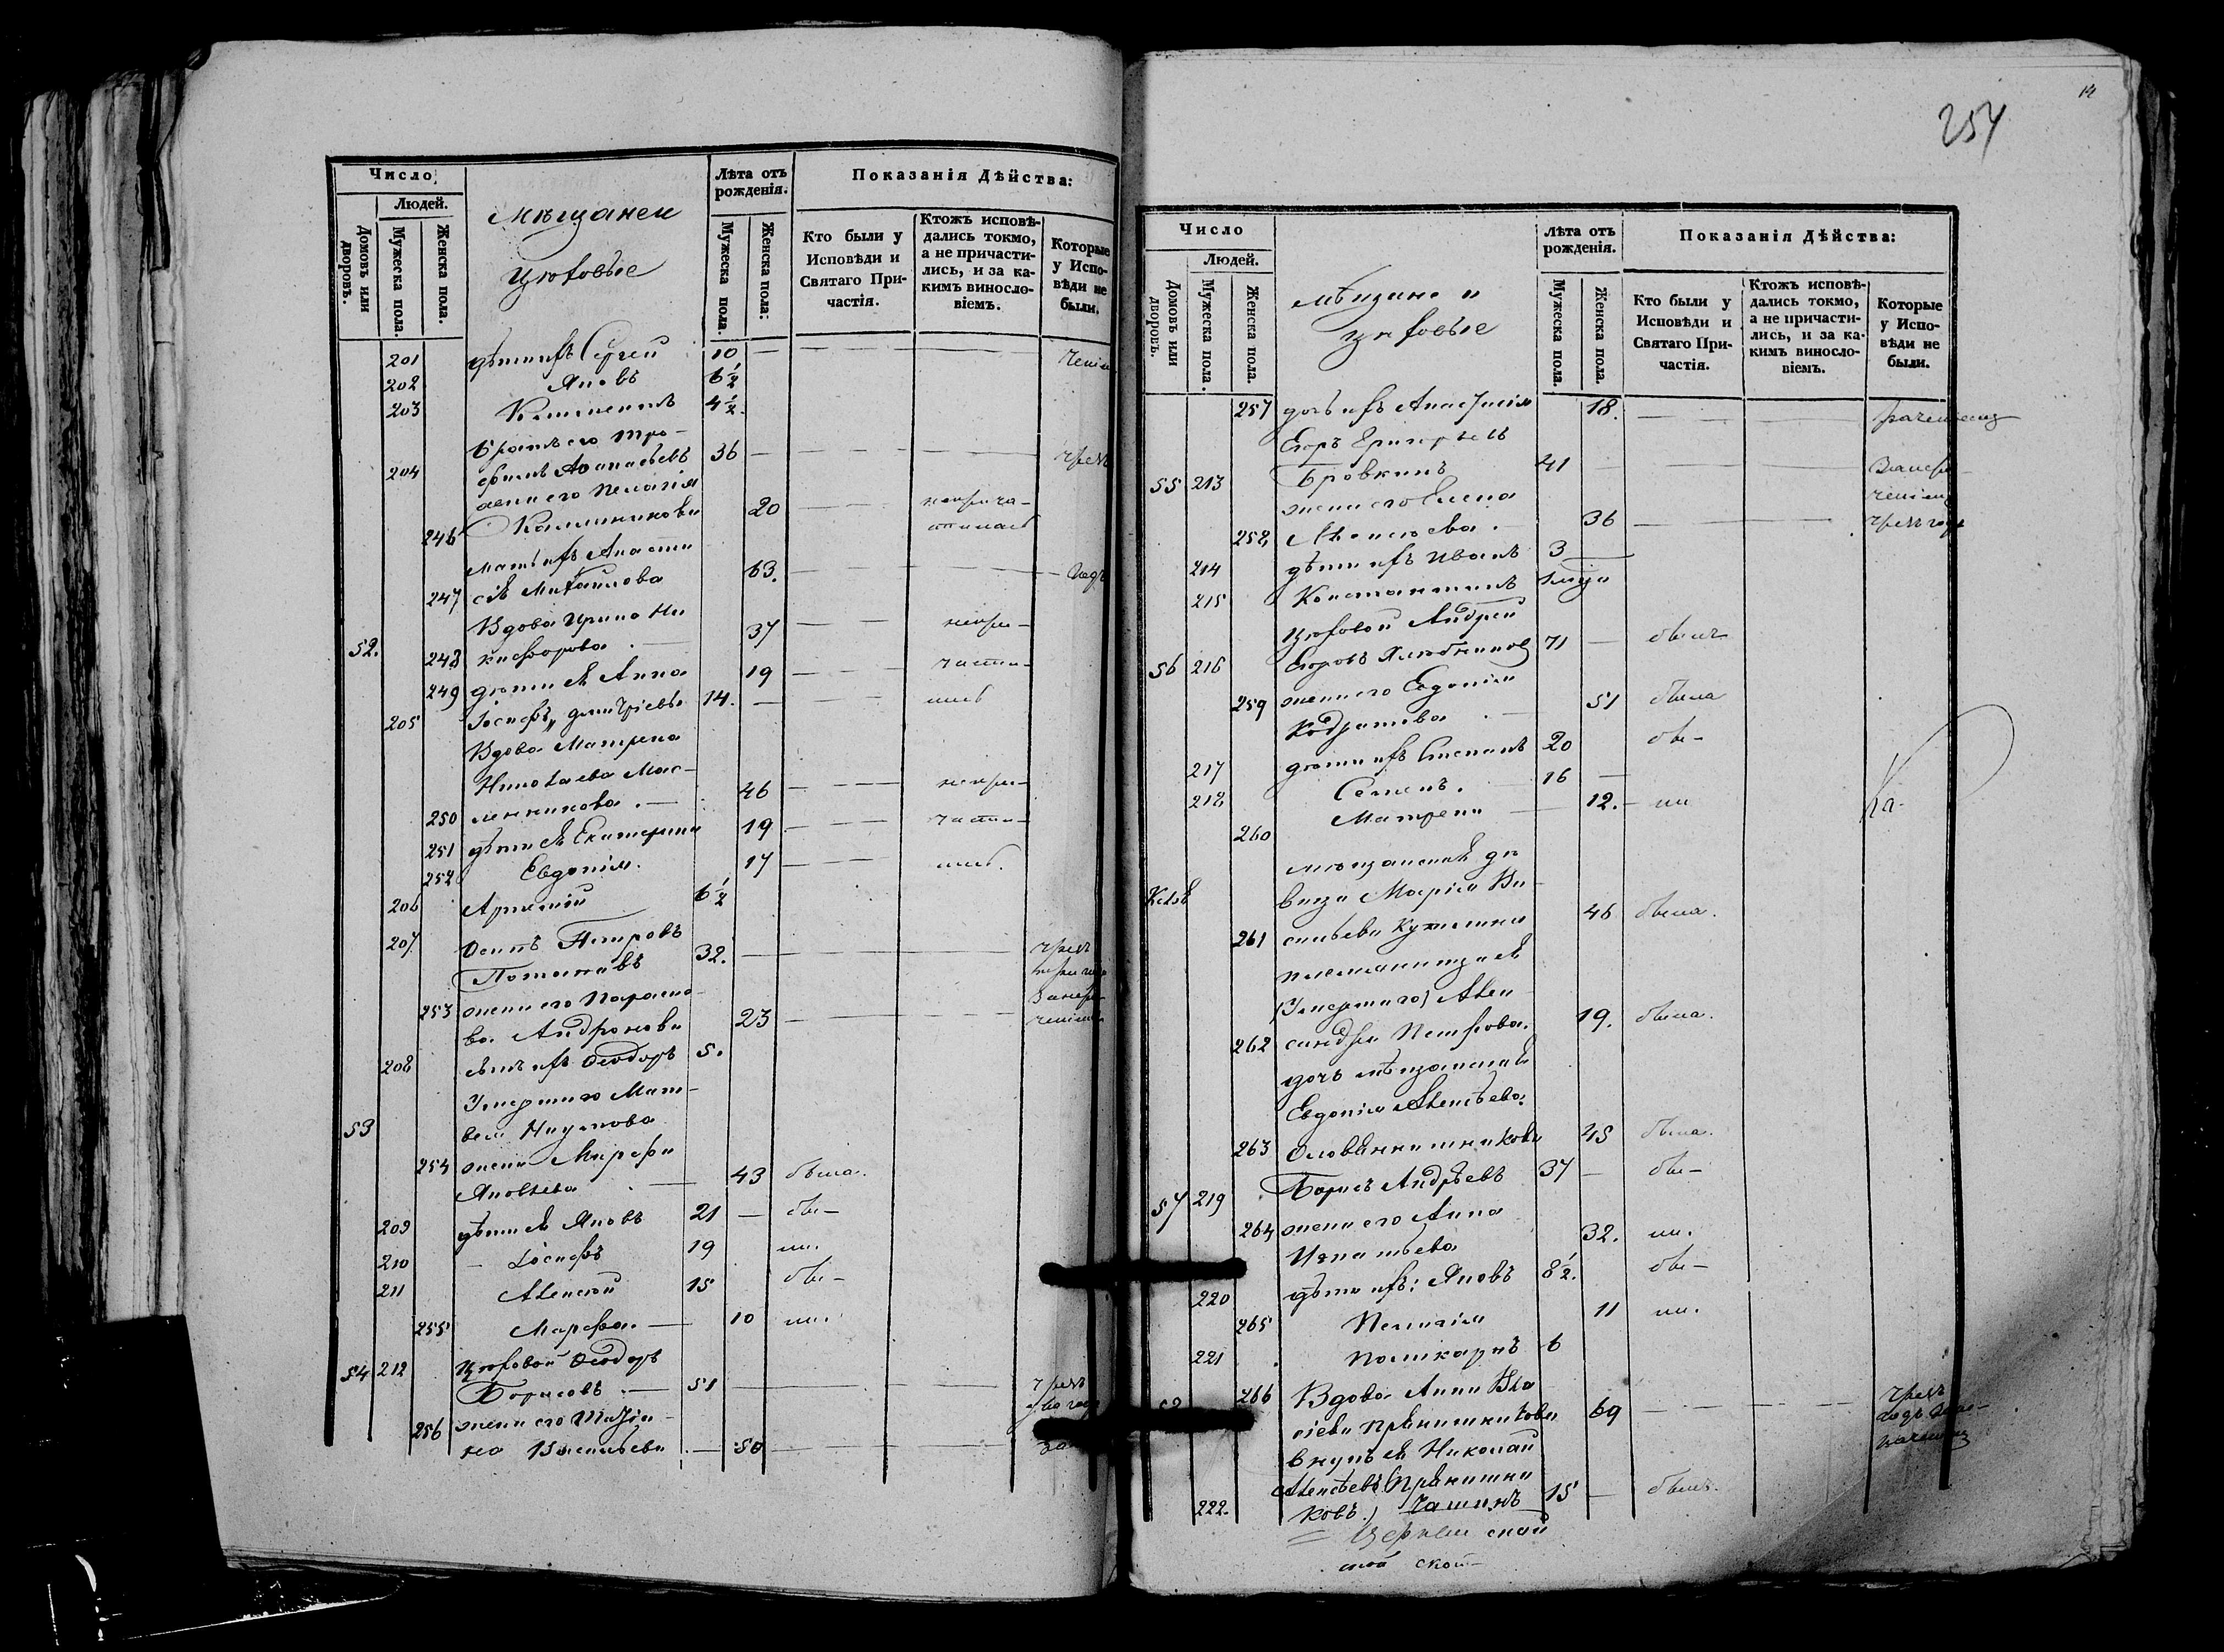 Число
Людей.
Домовъ или дворовъ.
Мужеска пола.
Женска пола.
мѣщане и
цеховые
Лѣта отъ рожденія.
Мужеска пола.
Женска пола.
Показанія Дѣйства:
Кто были у Исповѣди и Святаго Причастія.
Ктожъ исповѣдались токмо, а не причастились, и за какимъ винословіемъ.
Которые у Исповѣди не были.
201 дѣти ихъ Сергей 10
202 Яковъ 6½
203 Климентъ 4½
братъ его Тро-
204 фимъ Афанасьевъ 36
жена его Пелагія
246 Калинникова 20 неприча-
стилась
мать ихъ Анаста
247 сія Михайлова 63.
Вдова Ирина Ни
52. 248 кифорова 37 непри-
249 дѣти ея Анна 19 части-
205 Іосифъ Дмитріевъ 14. лись
Вдова Матрена
Николаева Мас-
250 ленникова 46 непри-
251 дѣти ея Екатерина 19 части-
252 Евдокія 17 лись.
206 Артемій 6½
207 Осипъ Петровъ
32.
253 жена его Параско-
ва Андронова 23
208 сынъ ихъ Ѳеодоръ 5.
Умершаго Мат-
53 вея Наумова
254 жена Марфа
Яковлева 43 была.
209 дѣти ея Яковъ 21 бы-
210 Іосифъ 19 ли.
211 Алексѣй 15 бы-
255 Марфа 10 ли.
54 212 Цеховой Ѳеодоръ
Борисовъ 51 чрезъ
256 жена его Татіа-
на Васильева 50
14
254
Число
Людей.
Домовъ или дворовъ.
Мужеска пола.
Женска пола.
мѣщане и
цеховые
Лѣта отъ рожденія.
Мужеска пола.
Женска пола.
Показанія Дѣйства:
Кто были у Исповѣди и Святаго Причастія.
Ктожъ исповѣдались токмо, а не причастились, и за какимъ винословіемъ.
Которые у Исповѣди не были.
257 дочь ихъ Анастасія 18.
Егоръ Григорьевъ
55 213 Бровкинъ 41
жена его Елена
258 Алексѣева 36
214 дѣти ихъ Иванъ 3
215 Константинъ
Цеховой Андрей
56 216 Егоровъ 71 былъ
259 жена его Евдокія
Кодратова 51 была
217 дѣти ихъ Степанъ 20 бы-
218 Семенъ 16
260 Матрена 12. ли
мѣщанская дѣ
вица Марія Ва
261 сильева 46 была.
племянница ея
(умершаго) Алек
262 сандра Петрова. 19. была.
дочь мѣщанская
Евдокія Алексѣева
263 Оловянишникова 45 была.
57 219 Борисъ Андрѣевъ 37 бы-
264 жена его Анна
Игнатьева 32. ли.
220 дѣти ихъ: Яковъ 8½. бы-
265 Пелагія 11 ли.
221 Поликарпъ 6
58 266 Вдова Анна Вла
сіева Прянишникова 69 чрезъ
внукъ ея Николай
Алексѣевъ (Прянишни
222. ковъ) 15 былъ.